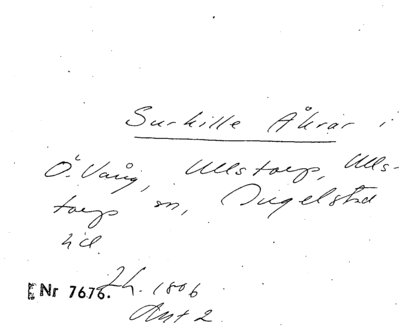 Surkille Åkrar i
Ö. Vång, Ullstorp, Ulls-
torp sn, Ingelstad
hd.
Lh. 1806
Nr 7676.
Akt 2